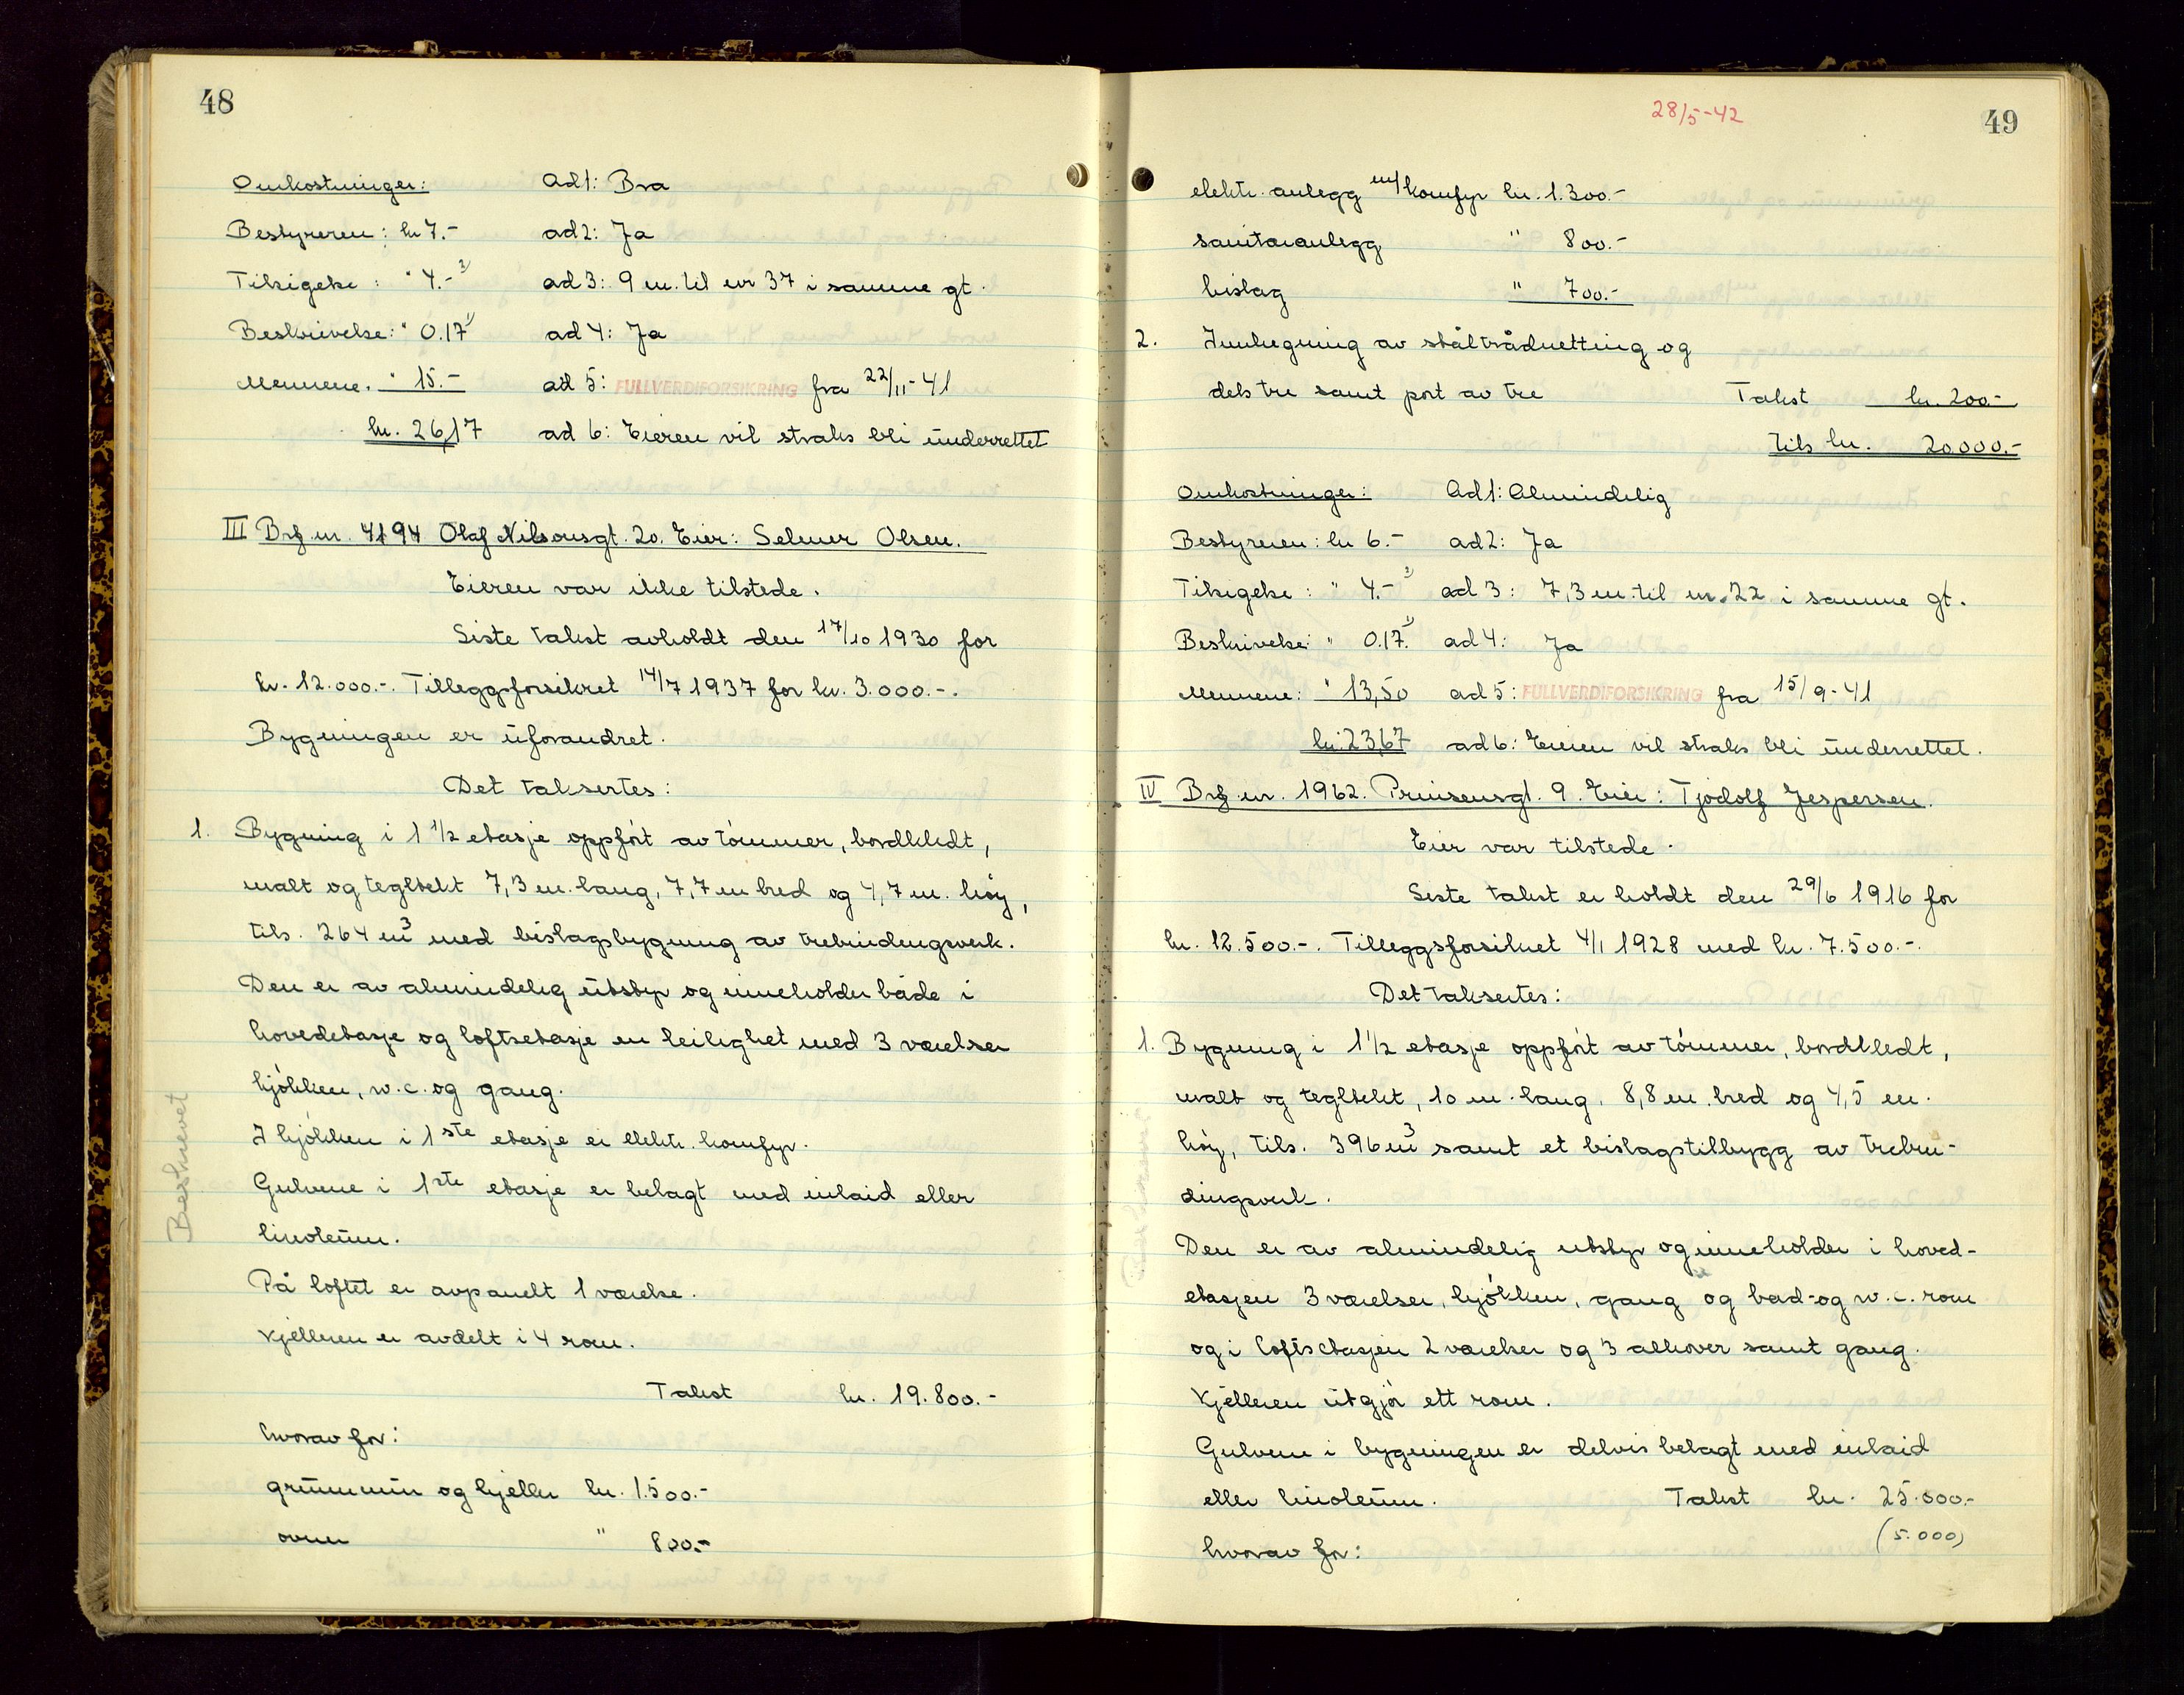 48
Omkostninger: Ad1: Bra
Bestyreren: kr 7.- ad2: Ja
Tilsigelse: " 4.- ad 3: 9 m. til nr 37 i samme gt.
Beskrivelse: " 0.17 ad 4: Ja
Mennene. " 15.- ad 5: FULLVERDIFORSIKRING fra 22/11-41
kr. 26,17 ad 6: Eieren vil straks bli underrettet
III Brf. nr. 4194 Olaf Nilsonsgt. 20. Eier: Selmer Olsen.
Eieren var ikke tilstede.
Siste takst avholdt den 17/10 1930 for
kr. 12.000.-. Tilleggsforsikret 14/7 1937 for kr. 3.000.-.
Bygningen er uforandret.
Det taksertes:
1. Bygning i 1 1/2 etasje oppført av tømmer, bordkledt,
malt og tegltekt 7,3 m. lang, 7,7 m bred og 4,7 m. høy,
tils. 264 m3 med bislagsbygning av trebindingsverk.
Den er av almindelig utstyr og inneholder både i
hovedetasje og loftsetasje en leilighet med 3 værelser
kjøkken, w.c. og gang.
I kjøkken i 1ste etasje er elektr. komfyr.
Gulvene i 1ste etasje er belagt med inlaid eller
linoleum.
På loftet er avpanelt 1 værelse.
Kjelleren er avdelt i 4 rom.
Takst kr. 19.800.-
hvorav for:
grunnmur og kjeller kr. 1.500.-
ovner " 800.-
Beskrevet
28/5-42
49
elektr. anlegg m/komfyr kr. 1.300.-
sanitæranlegg " 800.-
bislag " 700.-
2. Innhegning av ståltrådnetting og
dels tre samt port av tre Takst kr. 200.-
tils kr. 20.000.-
Omkostninger: Ad1: Almindelig
Bestyreren: kr 6.- ad2: Ja
Tilsigelse: " 4.- ad 3: 7,3 m. til nr. 22 i samme gt.
Beskrivelse: " 0.17. ad 4: Ja
Mennene: " 13,50 ad 5: FULLVERDIFORSIKRING fra 15/9-41
kr. 23,67 ad 6: Eieren vil straks bli underrettet.
IV Brf. nr. 1962. Prinsensgt. 9. Eier: Tjodolf Jespersen.
Eier var tilstede.
Siste takst er holdt den 29/6 1916 for
kr. 12.500.-. Tilleggsforsikret 4/1 1928 med kr. 7.500.-.
Det taksertes:
1. Bygning i 1 1/2 etasje oppført av tømmer, bordkledt,
malt og tegltekt, 10 m. lang, 8,8 m. bred og 4,5 m.
høy, tils. 396 m3 samt et bislagstilbygg av trebin-
dingsverk.
Den er av almindelig utstyr og inneholder i hoved-
etasjen 3 værelser, kjøkken, gang og bad- og w.c. rom
og i loftsetasjen 2 værelser og 3 alkover samt gang.
Kjelleren utgjør ett rom.
Gulvene i bygningen er delvis belagt med inlaid
eller linoleum. Takst kr. 25.000.-
(5.000)
hvorav for: